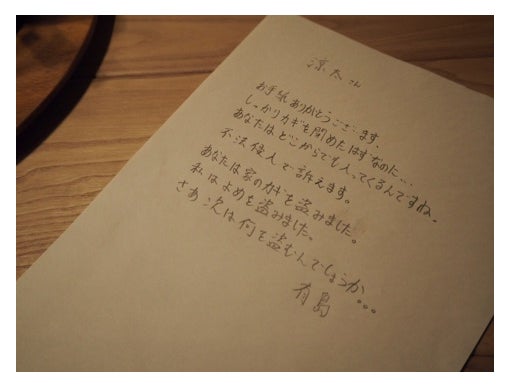 涼太さん
お手紙ありがとうございます.
しっかりカギを閉めたはずなのに...
あなたはどこからでも入ってくるんですね。
不法侵入で訴えます。
あなたは家のカギを盗みました。
私はよめを盗みました。
さあ次は何を盗むんでしょうか...
有島